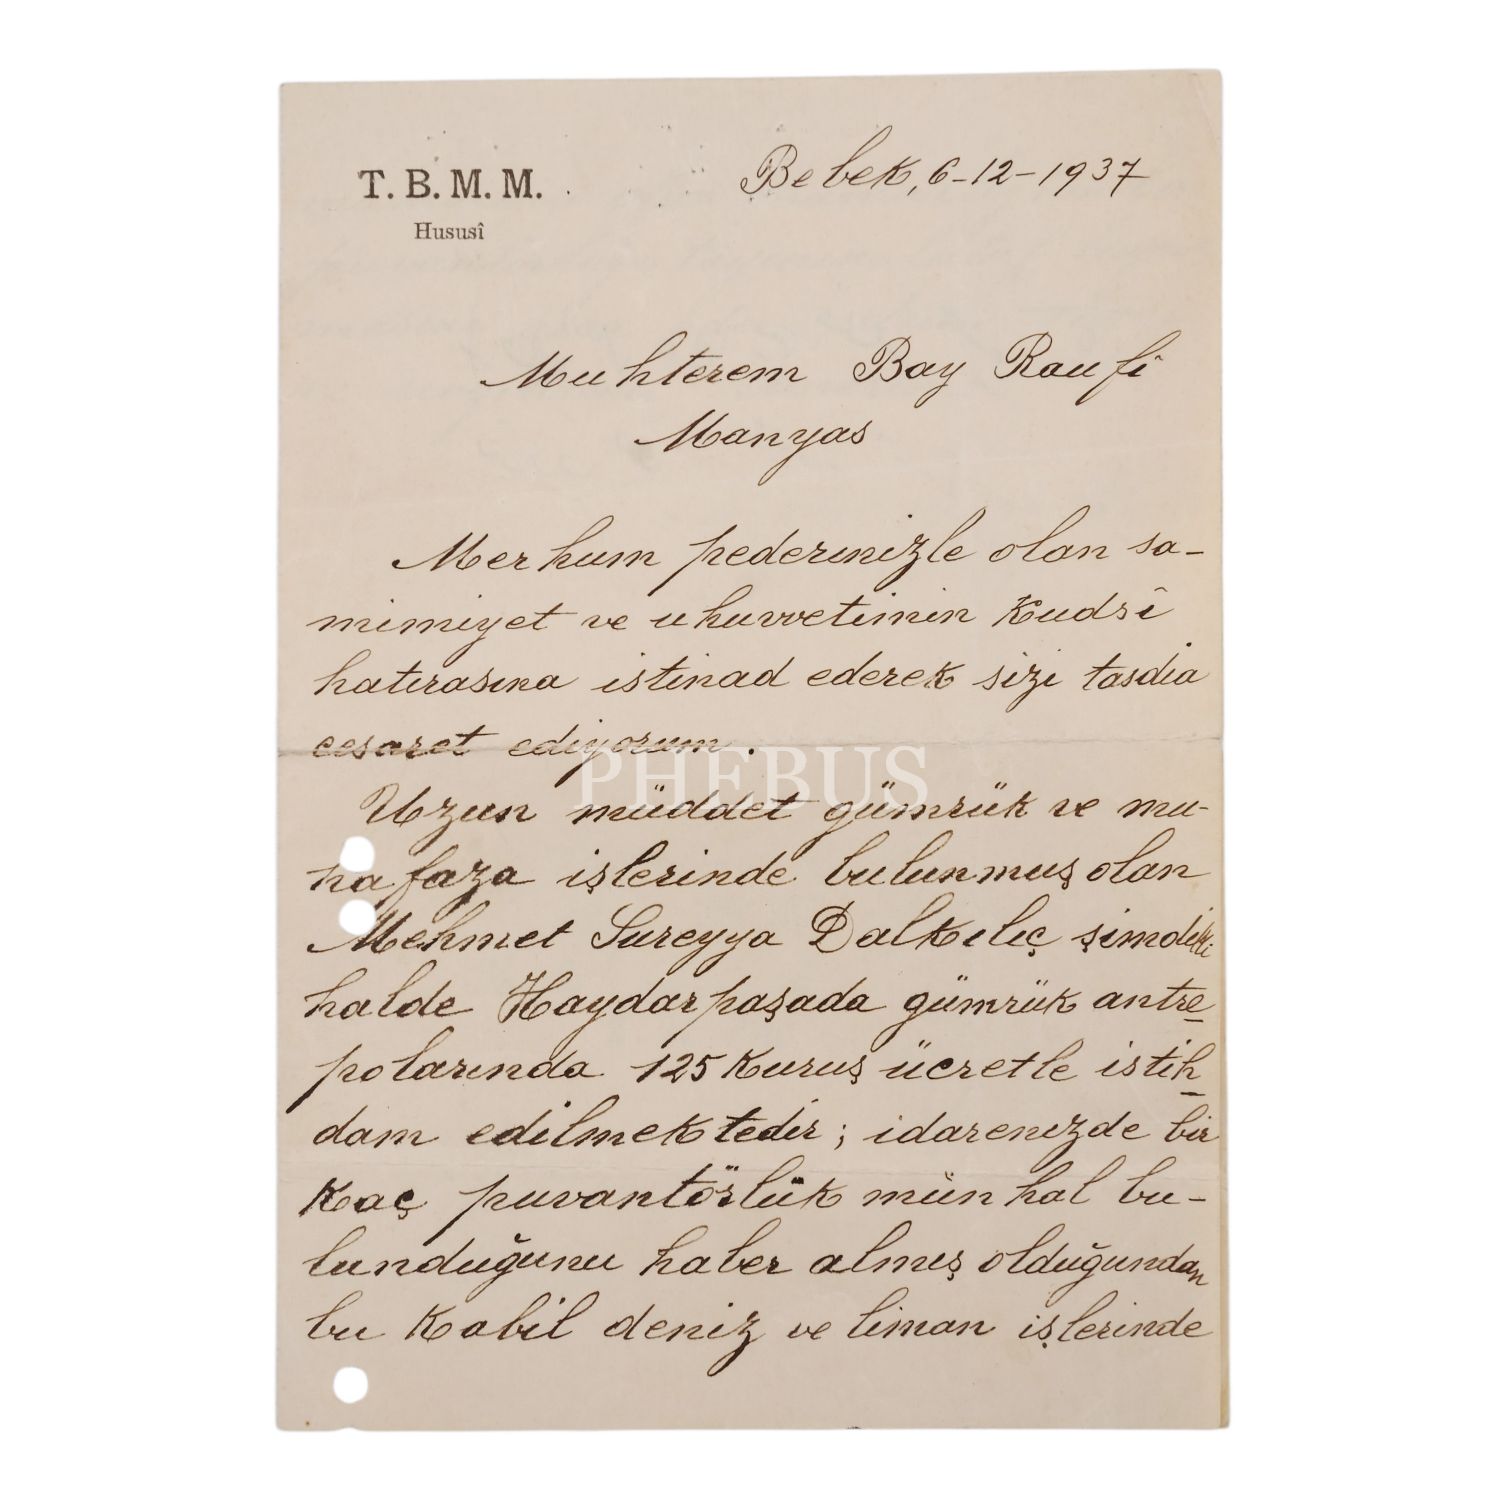 T. B. M. M.
Hususî
Bebek, 6-12-1937
Muhterem Bay Raufi
Manyas
Merhum pederinizle olan sa-
mimiyet ve uhuvvetimin kudsî
hatırasına istinad ederek sizi tasdia
cesaret ediyorum.
PHEBUS
Uzun müddet gümrük ve mu-
hafaza işlerinde bulunmuş olan
Mehmet Sureyya Dalkılıç şimdiki
halde Haydarpaşada gümrük antre-
polarında 125 kuruş ücretle istih-
dam edilmektedir; idarenizde bir
kaç puvantörlük münhal bu-
lunduğunu haber almış olduğundan
bu kabil deniz ve liman işlerinde